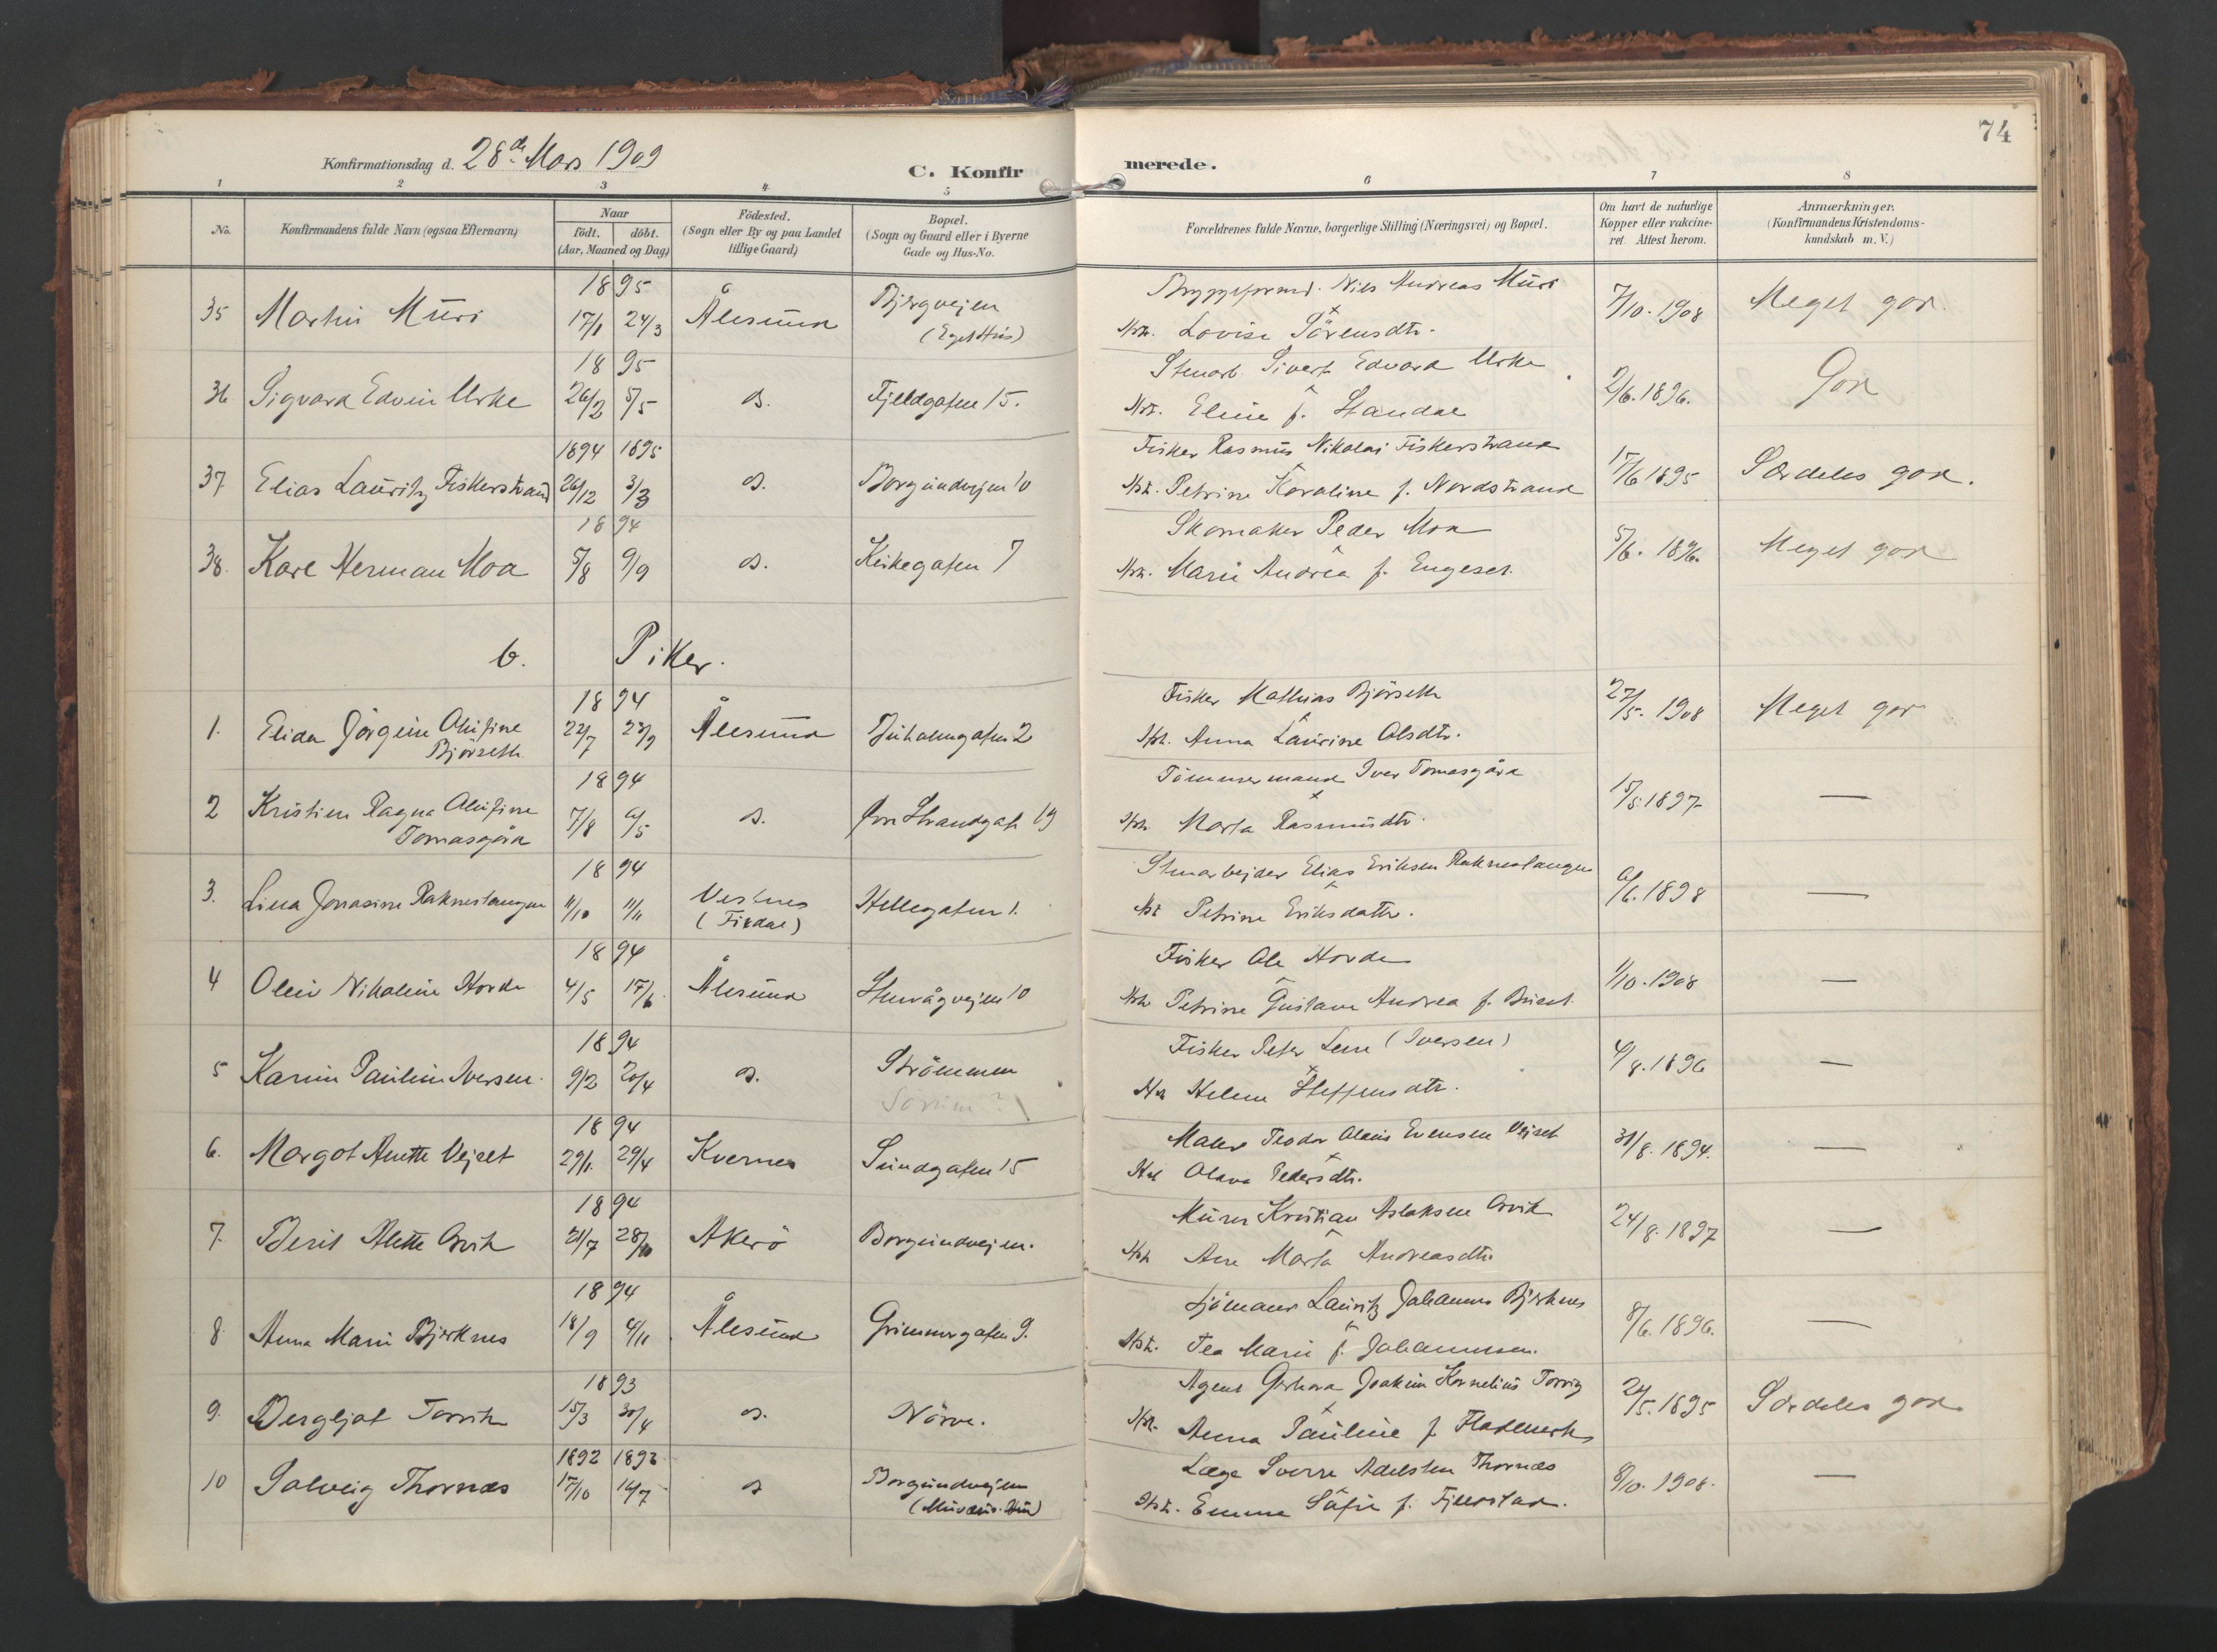 74
Konfirmationsdag d. 28de Mars 1909
C. Konfirmerede.
1 2 3 4 5 6 7 8
No.
Konfirmandens fulde Navn (ogsaa Efternavn)
Naar
födt. döbt.
(Aar, Maaned og Dag)
Födested.
(Sogn eller By og paa Landet
tillige Gaard)
Bopæl.
(Sogn og Gaard eller i Byerne
Gade og Hus-No.
Forældrenes fulde Navne, borgerlige Stilling (Næringsvei) og Bopæl.
Om havt de naturlige
Kopper eller vakcine-
ret. Attest herom.
Anmærkninger.
(Konfirmandens Kristendoms-
kundskab m. V.)
1895
35 Martin Muri 17/1 24/3 Ålesund Bjergvejen
(Eget Hus)
Nils Andreas Muri
Lovise Sörensdtr.
7/10. 1908 Meget god.
1895
36 Sigvard Edvin Urke 26/2 5/5 d. Fjeldgaten 15.
Stenarb. Sivert Edvard Urke
Eline f. Standal
2/6. 1896. God
1894 1895
37 Elias Lauritz Fiskerstrand 26/12 3/3 d. Borgundvejen 10
Fisker Rasmus Nikolai Fiskerstrand
Petrine Karoline f. Nordstrand
17/6 1895 Særdeles god.
1894
38. Karl Herman Moa 5/8 9/9 d. Kirkegaten 7
Skomaker Peder Moa
Marie Andrea f. Engeset.
5/6. 1896. Meget god
b. Piker.
1894
1. Elida Jörgine Olufine
Björseth
22/7 23/9 Ålesund
Fisker Mathias Björseth
Anna Laurine Olsdtr.
27/5. 1908 Meget god
1894
2 Kristine Ragna Olufine
Tomasgård
7/8 d. Övre Strandgat 19
Tömmermand Iver Tomasgård
Marta Rasmusdtr.
15/5. 1897 —
1894
3. Lina Jonasine Raknestangen 11/10 11/11 Vestnes
(Fixdal)
Hellegaten 1.
Stenarbejder Elias Eriksen Raknestangen
Petrine Eriksdatter.
1898 —
1894
4 Olevi Nikoline Hovde 4/5 17/6 Ålesund Stenvågvejen 10
Fisker Ole Hovde
Petrine Gustava Andrea f.
1/10. 1908 —
1894
5 Karen Pauline Iversen 9/2 20/4 d. Strömmen
Fisker Peter Lene (Iversen)
Helene Steffensdtr.
1896 —
1894
6. Margot Anette Vejset 29/1. 29/4 Kvernes Sundgaten 15
Maler Teodor Olaus Evensen Vejset
Olava Pedersdtr.
31/8. 1894. —
1894
7. Berit Alette Orvik 21/7 28/10 Akerö Borgundvejen.
Murer Kristian Aslaksen Orvik
Ane Marta Andreasdtr.
24/8. 1897 —
1894
8 Anna Marie Bjerknes 18/9 4/11 Ålesund Grimmergaten 9.
Sjömand Lauritz Johannes Bjerknes
Tea Marie f. Johannesen.
8/6. 1896. —
1893
9. Bergljot Torvik 15/3 30/4 d. Nörve.
Agent Gerhard Joakim Kornelius Torvig
Anna Pauline f. Flademark
24/5. 1895 Særdeles god.
1892 1893
10 Solveig Thornæs 17/10 16/7 d Borgundvejen
Læge Sverre Adelsten Thornæs
Emma Sofie f. Fjelstad.
8/10. 1908. —